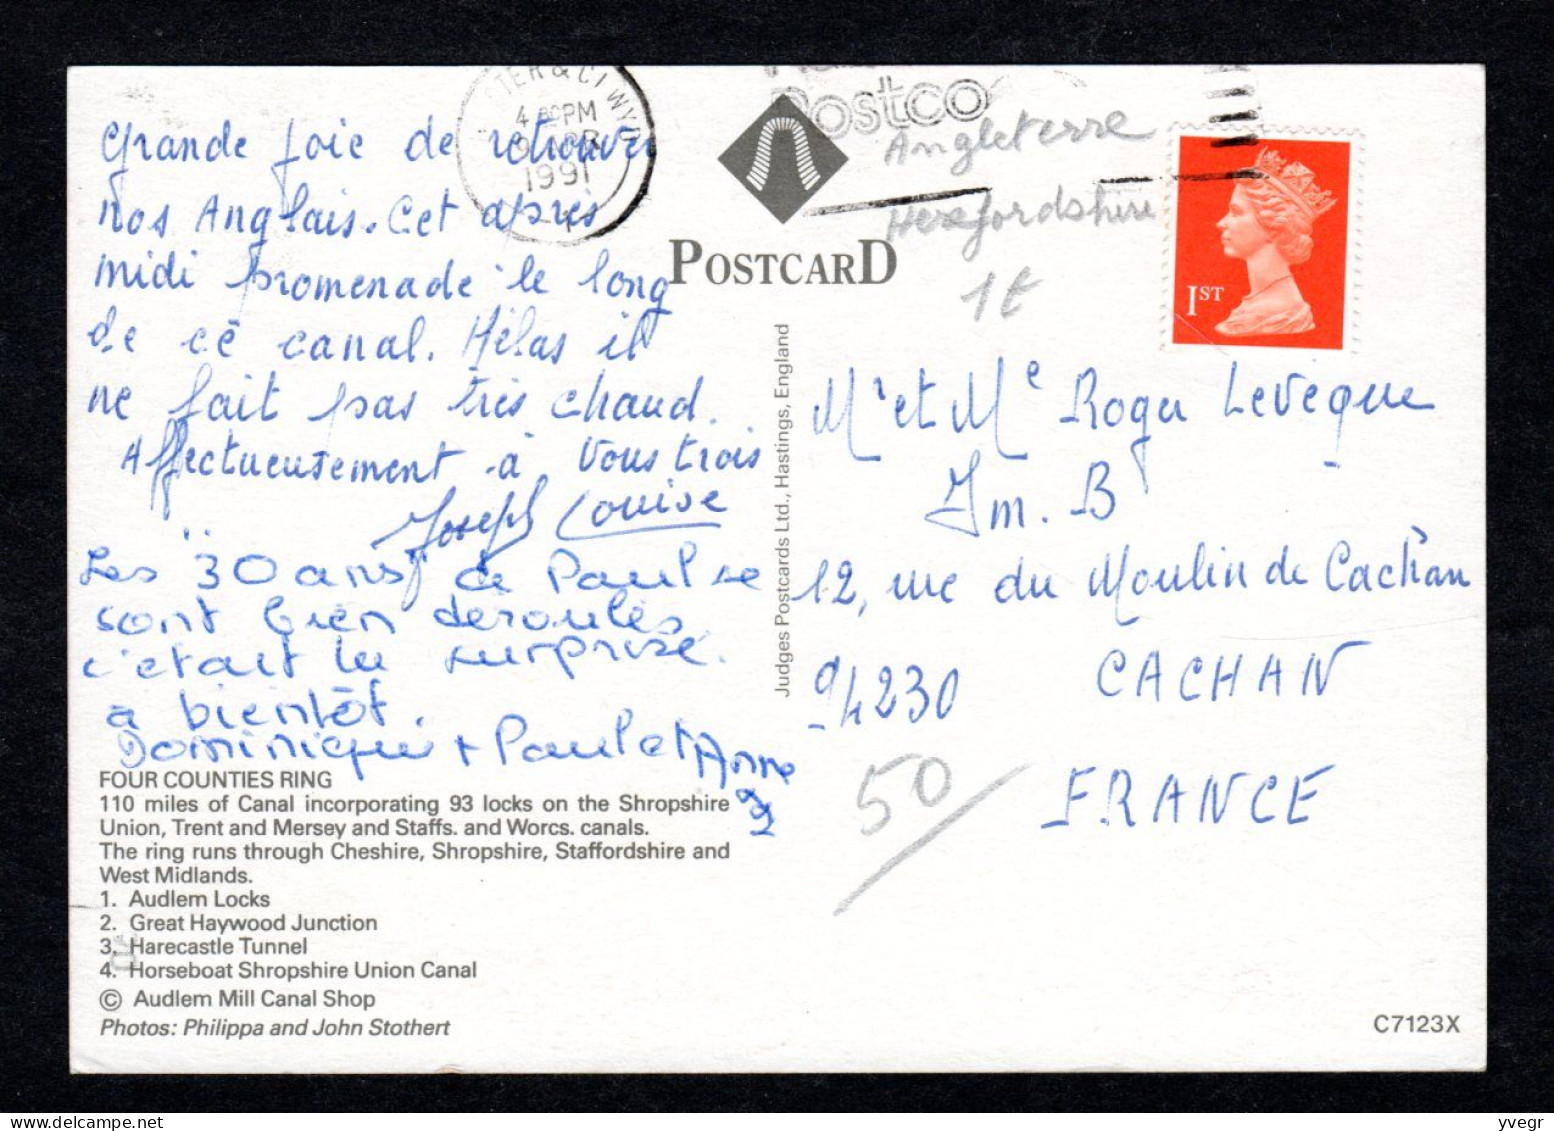 Grande joie de retrouver
nos Anglais. Cet après
midi promenade le long
de ce canal. Hélas il
ne fait pas très chaud.
Affectueusement à vous trois
Joseph Louise
Les 30 ans de Paul se
sont bien deroulés,
c'était la surprise.
à bientôt.
Dominique + Paul et Anne
FOUR COUNTIES RING
110 miles of Canal incorporating 93 locks on the Shropshire
Union, Trent and Mersey and Staffs. and Worcs. canals.
The ring runs through Cheshire, Shropshire, Staffordshire and
West Midlands.
1. Audlem Locks
2. Great Haywood Junction
3. Harecastle Tunnel
4. Horseboat Shropshire Union Canal
© Audlem Mill Canal Shop
Photos: Philippa and John Stothert
TER & CLWYD
4 PM
9 APR
1991
Postco
POSTCARD
Judges Postcards Ltd., Hastings, England
Angleterre
Herefordshire
1t
1ST
Mr et Me Roger Leveque
Im. B
12, rue du Moulin de Cachan
94230 CACHAN
FRANCE
50
C7123X
yvegr